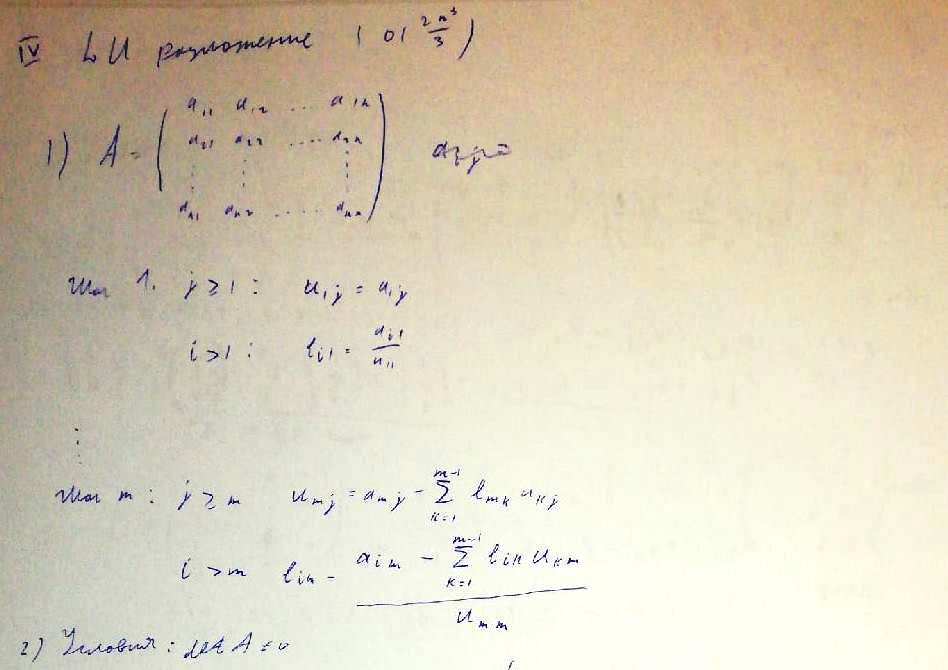 IV LU разложение ( O( 2n³/3 )
1) A = ( a₁₁ a₁₂ ... a₁ₙ
a₂₁ a₂₂ .... a₂ₙ
⋮ ⋮ ⋮
aₙ₁ aₙ₂ ..... aₙₙ )
Шаг 1. j ≥ 1 : u₁ⱼ = a₁ⱼ
i > 1 : lᵢ₁ = aᵢ₁ / u₁₁
⋮
Шаг m : j ≥ m u_mj = a_mj - Σ_{k=1}^{m-1} l_mk u_kj
i > m l_im = (a_im - Σ_{k=1}^{m-1} l_ik u_km) / u_mm
2) Условия : det A ≠ 0